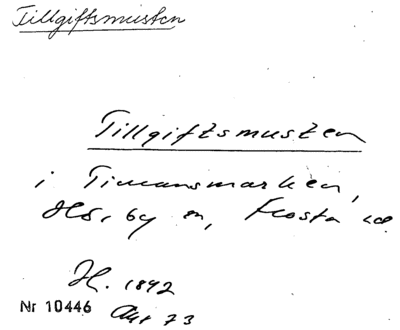 Tillgiftsmusten
Tillgiftsmusten
i Timansmarken,
by n, Frosta
H. 1892
Nr 10446
Akt 73